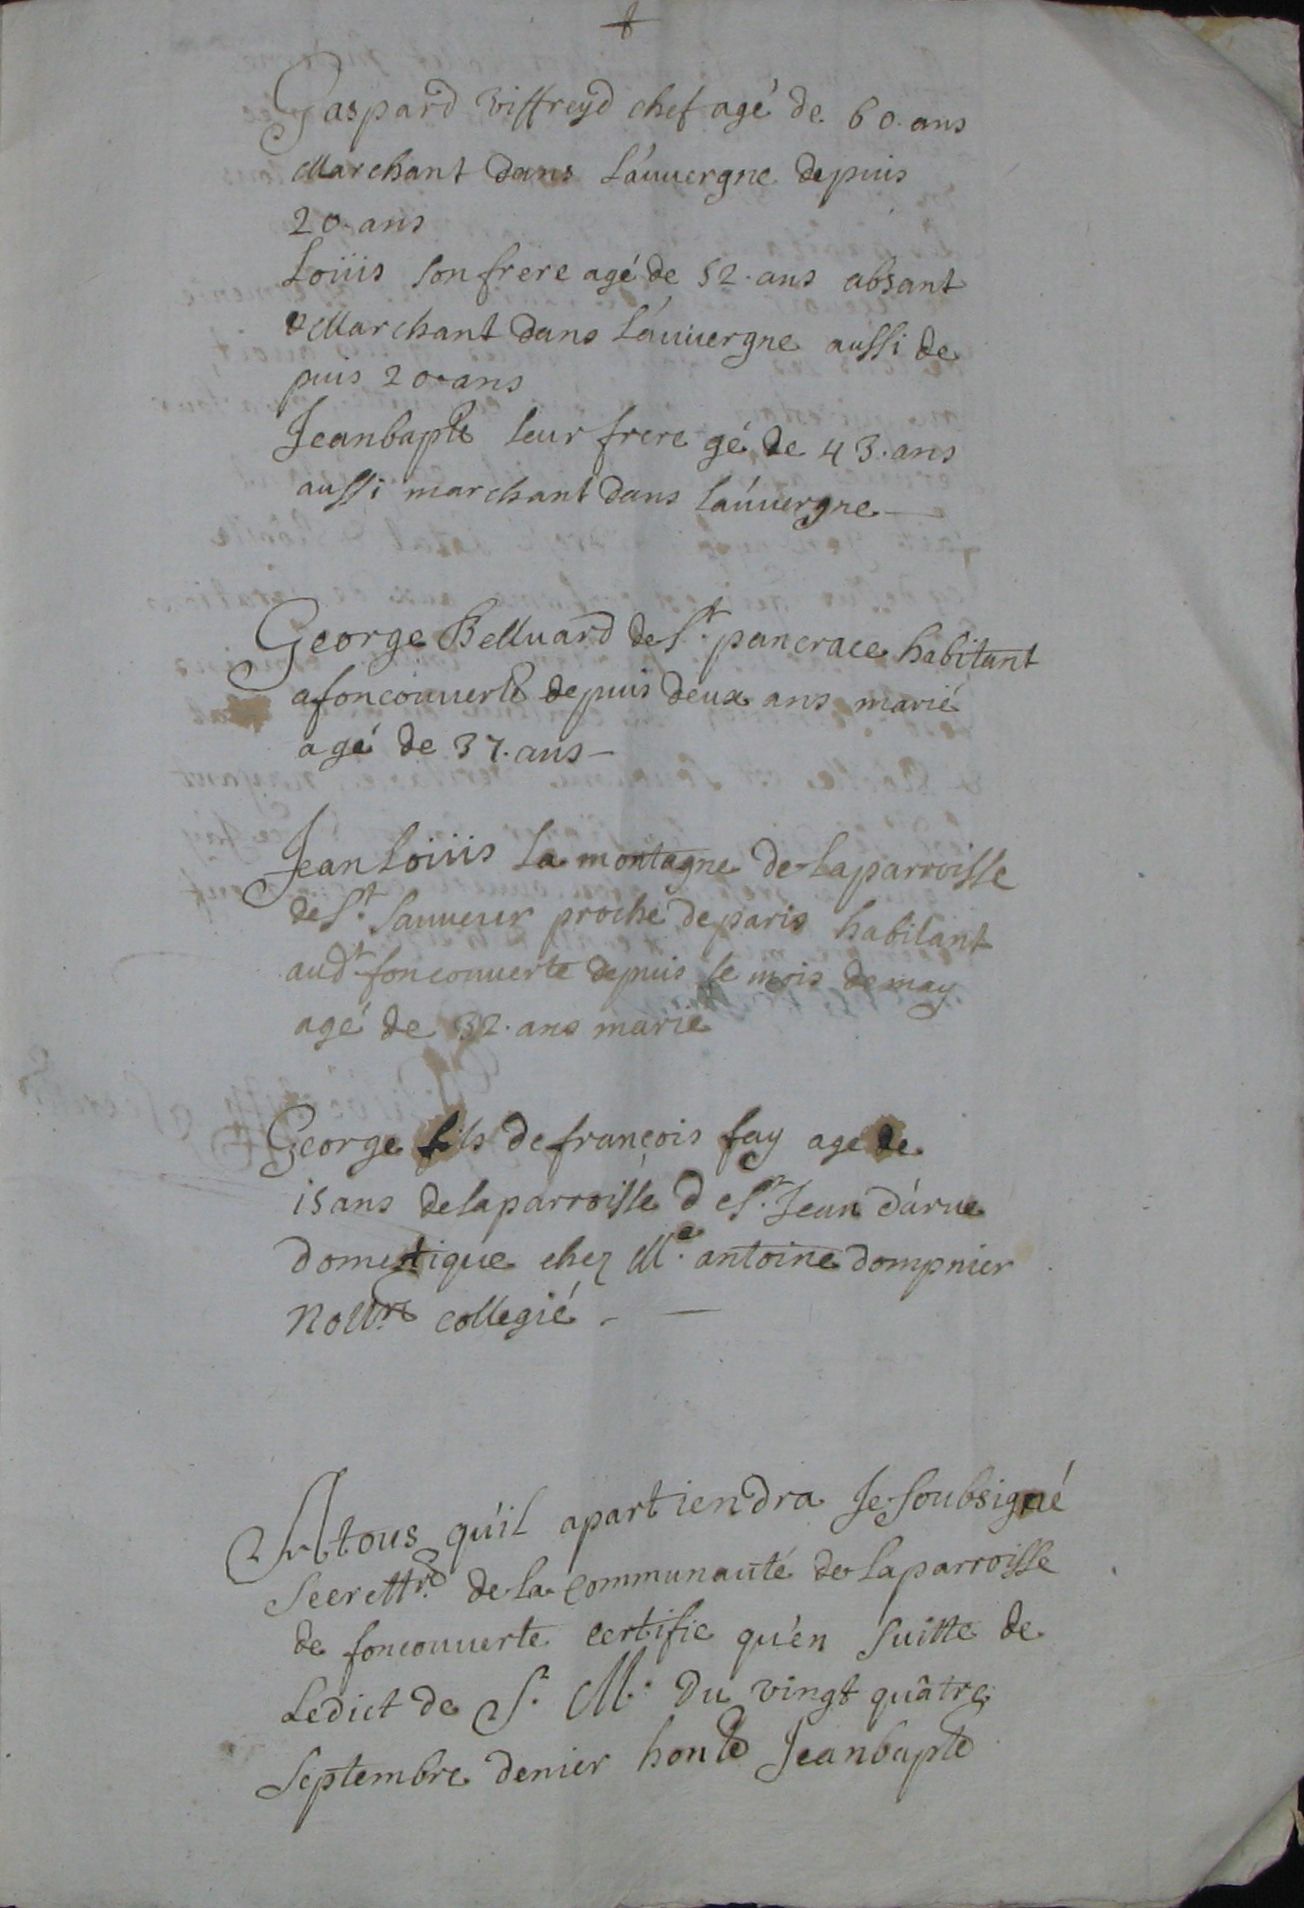 Gaspard Viffreyd chef agé de 60. ans
Marchant dans L'auvergne depuis
20. ans
Loüis son frere agé de 52. ans absant
Marchant dans L'auvergne aussi de
puis 20. ans
Jeanbapte leur frere gé de 43. ans
aussi marchant dans l'auvergne
George Belluard de St. pancrace habitant
a foncouverte depuis deux ans marié
agé de 37. ans
Jean Loüis La montagne de La parroisse
de St. Sauveur proche de paris habitant
audt foncouverte depuis le mois de may
agé de 32. ans marié
George fils de françois fay age de
15 ans de la parroisse de St. Jean d'arve
domestique chez Me. antoine dompnier
nottre collegié
A tous qu'il apartiendra Je soubsigné
Secrettre de la communauté de La parroisse
de foncouverte certifie qu'en suitte de
Ledict de S. M. Du vingt quatre
Septembre denier honble Jeanbapte